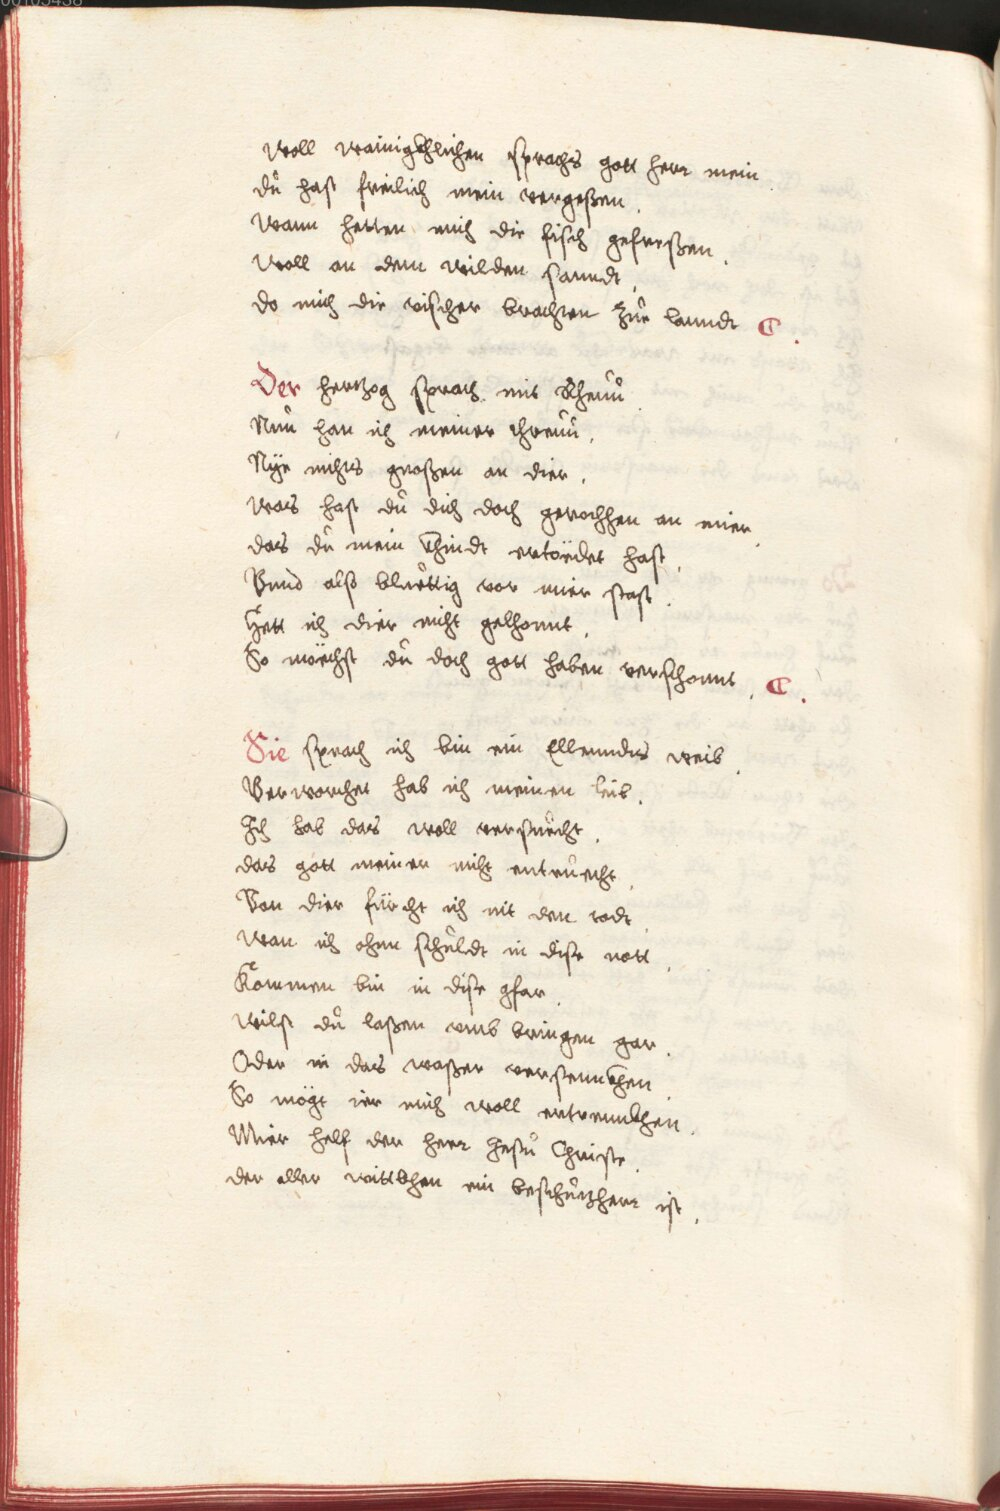 00103438
Woll wainigchlichen sprachs gott herr mein
du hast freilich mein vergeßen.
Wann hetten mich die fisch gefreßen.
Woll an dem wilden sanndt,
do mich die vischer brachten zue lanndt C.
Der hertzog sprach mit Rheuu
Nun han ich meiner threuu,
Nye nichts großen an dier,
was hast du dich doch gerochhen an mier,
das du mein khindt ertördet hast,
Vnnd alß bluettig vor mier stast.
Hett ich dier nicht gelhonnt,
So möchst du doch gott haben verschonnt. C.
Sie sprach ich bin ein Ellenndts weib,
Verworchet hab ich meinen leib,
Ich hab das woll versuecht,
das gott meiner nicht entruecht,
Von dier fürcht ich nit den todt,
Wan ich ohnn schuldt in dise nott,
Kommen bin in dise gfar,
Wilst du laßen vmb bringen gar.
Oder in das waßer versennchen
So mögt ier mich woll ertrennkhen.
Mier helf der herr Jesu Christe,
der aller wittkhen ein beschützherr ist,